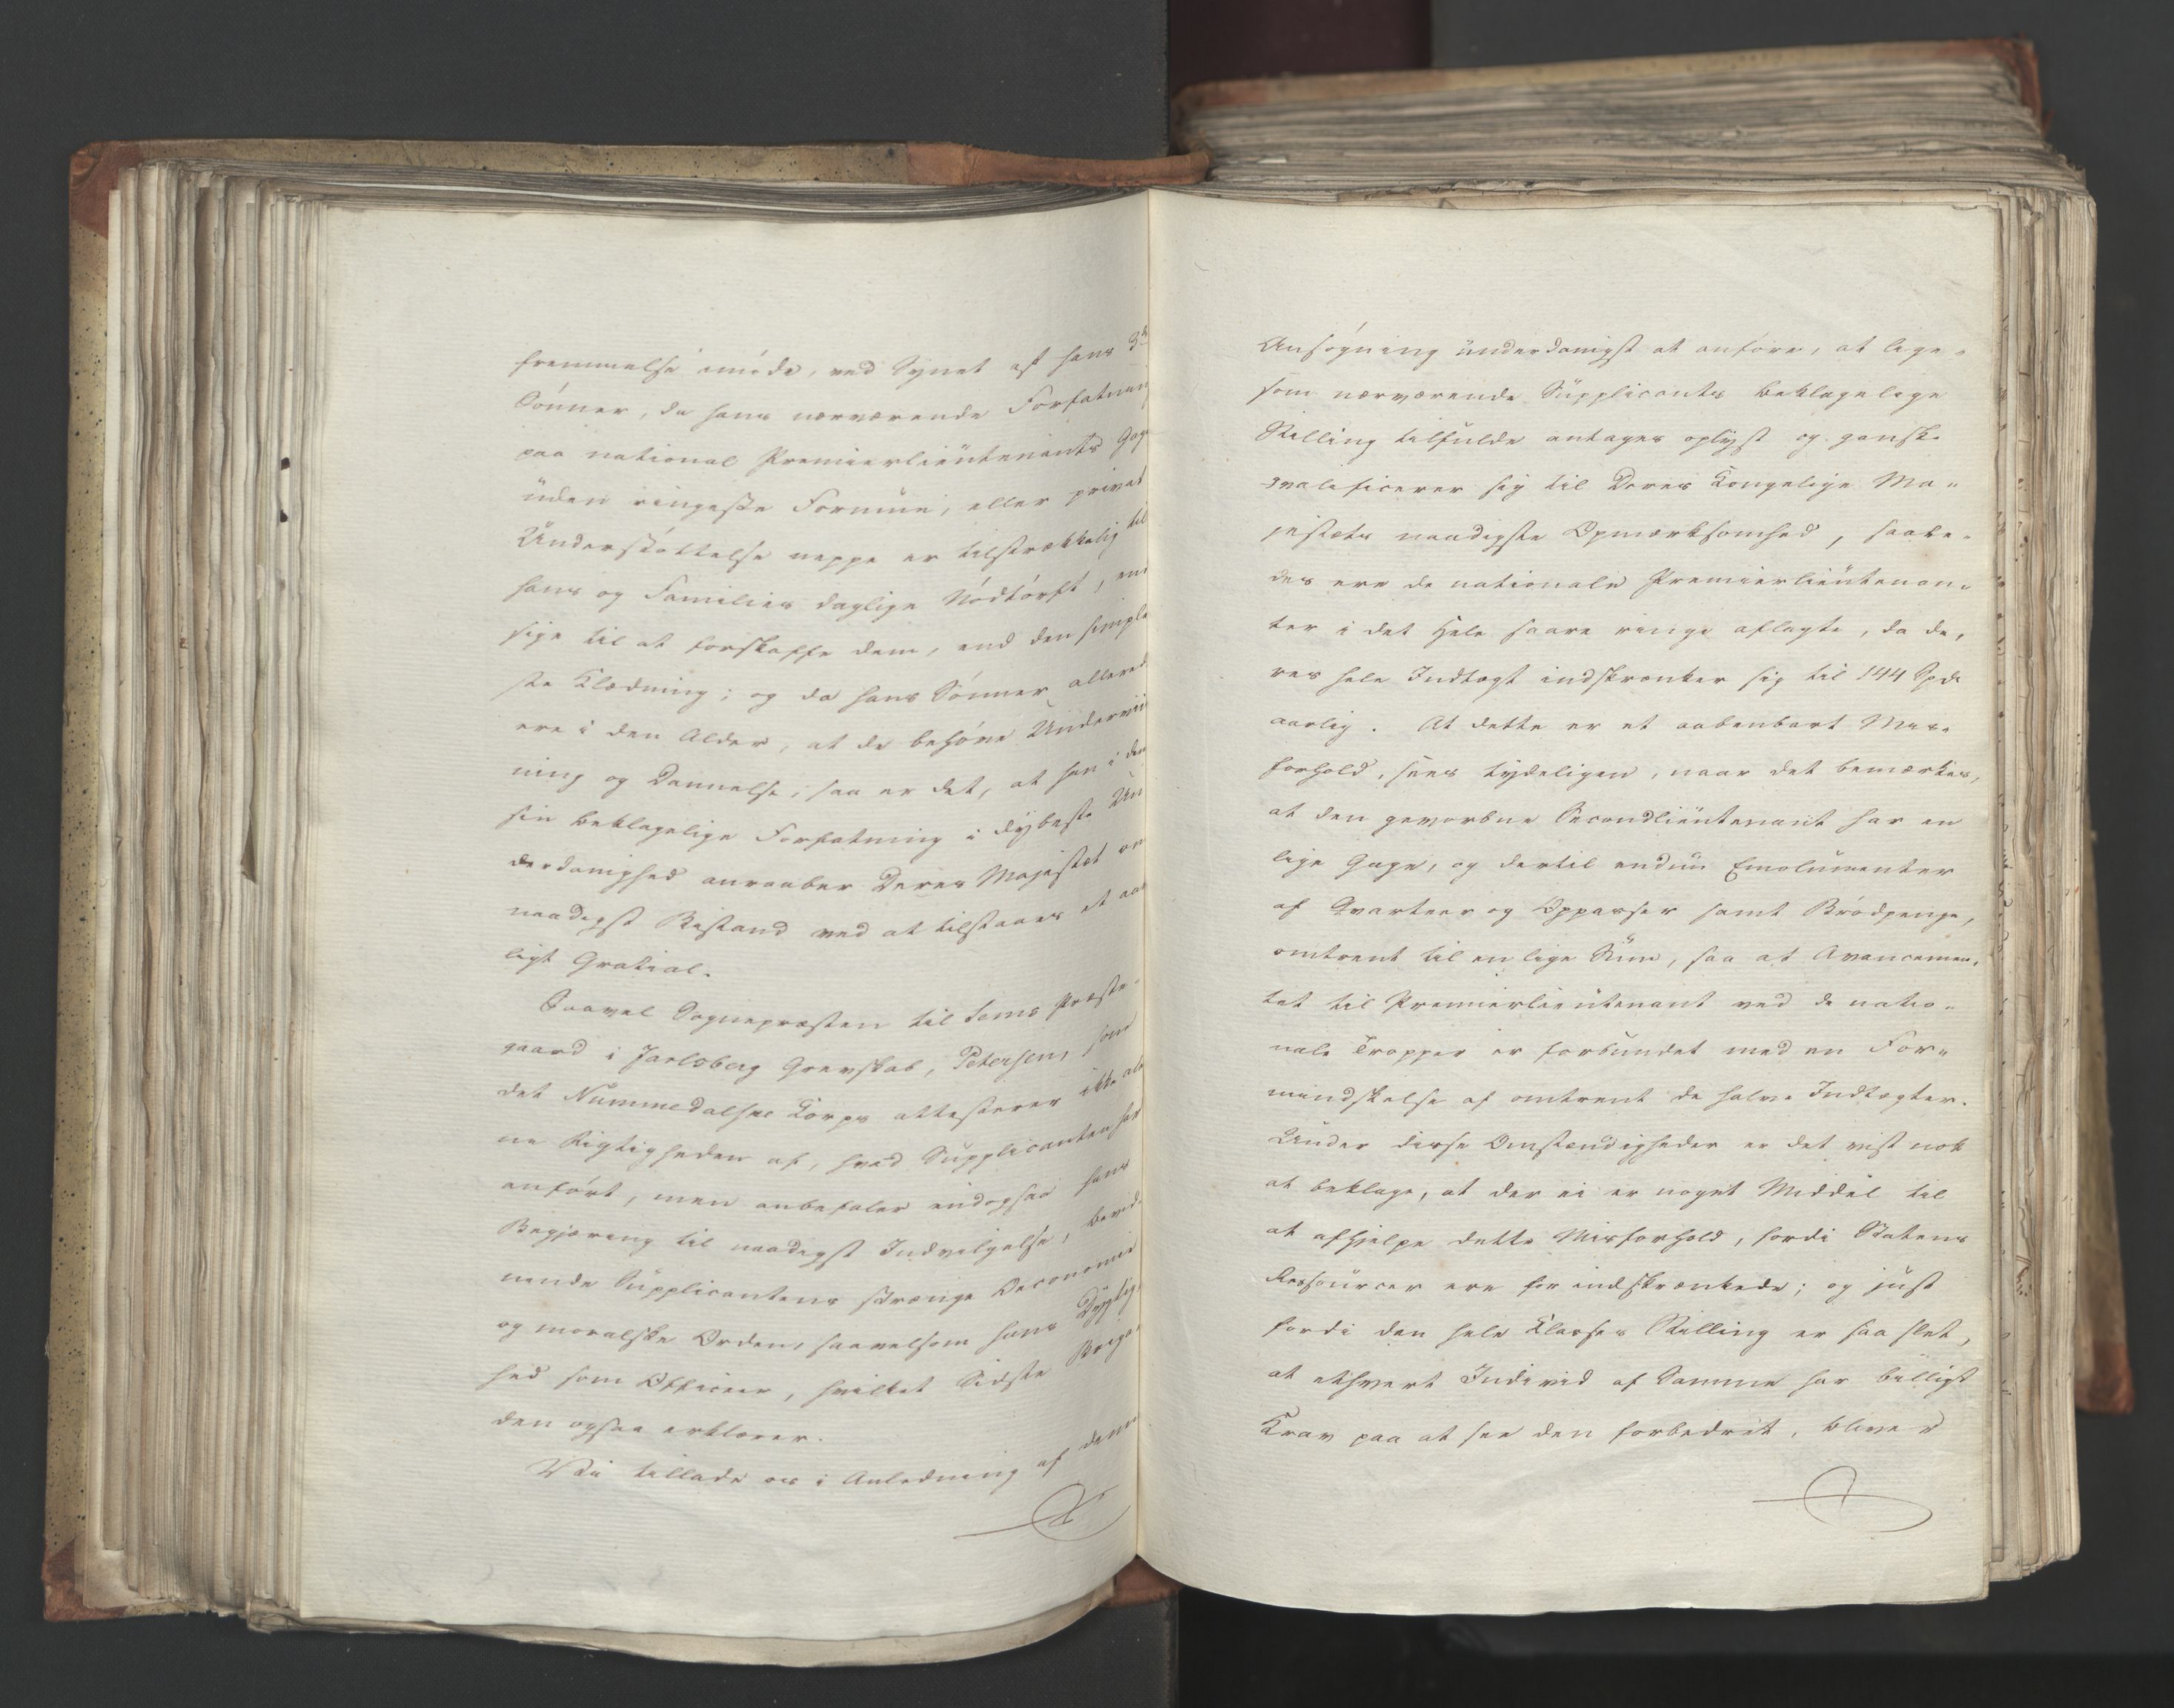 fremmelse imöde, ved Synet af hans 3de
Sönner, da hans nærværende Forfatning
paa national Premierlieutenants Gage
uden ringeste Formue, eller privat
Understöttelse neppe er tilstrækkelig til
hans og Families daglige Nödtörft, end
sige til at forskaffe dem, end den simple
ste Klædning; og da hans Sönner allered
ere i den Alder, at de behöve Underviis
ning og Dannelse, saa er det, at han i den
sin beklagelige Forfatning i dybeste Un
derdanighed anraaber Deres Majestæt om
naadigst Bistand ved at tilstaaes et aar
ligt Gratial.
Saavel Sognepræsten til Sems Præste-
gaard i Jarlsberg Grevskab, Petersen, som
det Nummedalske Korps attesterer ikke ale
ne Rigtigheden af, hvad Supplicanten har
anfört, men anbefaler endogsaa hans
Begjæring til naadigst Indvilgelse, bevid-
nende Supplicantens strænge Oeconomie
og moralske Orden, saavelsom hans Dygtig-
hed som Officeer, hvilket Sidste Briga-
den ogsaa erklærer.
Vi tillade os i Anledning af denne
Ansögning underdanigst at anföre, at lige-
som nærværende Supplicants beklagelige
Stilling tilfulde antages oplyst og ganske
qvalificerer sig til Deres Kongelige Ma-
jestæts naadigste Opmærksomhed, saale-
des ere de nationale Premierlieutenan-
ter i det Hele saare ringe aflagte, da de,
res hele Indtægt indskrænker sig til 144 Spd
aarlig. At dette er et aabenbart Mis-
forhold, sees tydeligen, naar det bemærkes,
at den gevorbne Secondlieutenant har en
lige Gage, og dertil endnu Emolumenter
af Qvarteer og Oppasser samt Brödpenge,
omtrent til en lige Sum, saa at Avancemen-
tet til Premierlieutenant ved de natio-
nale Tropper er forbundet med en For-
mindskelse af omtrent de halve Indtægter.
Under disse Omstændigheder er det vist nok
at beklage, at der ei er noget Middel til
at afhjelpe dette Misforhold, fordi Statens
Ressourcer ere for indskrænkede; og just
fordi den hele Klasses Stilling er saa slet,
at ethvert Individ af Samme har billigt
Krav paa at see den forbedret, bliver